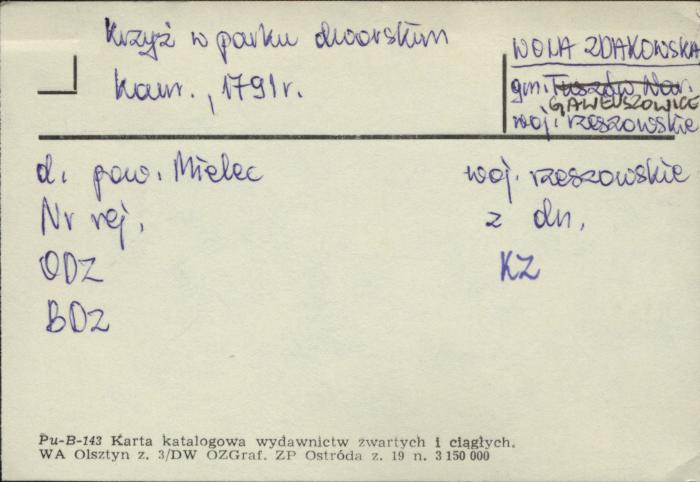 Krzyż w parku dworskim
kam., 1791 r.
WOLA ZDAKOWSKA
gm. Tuszów Nar.
GAWŁUSZOWICE
woj. rzeszowskie
d. pow. Mielec
woj. rzeszowskie
Nr rej.
z dn.
ODZ
KZ
BDZ
Pu-B-143 Karta katalogowa wydawnictw zwartych i ciągłych.
WA Olsztyn z. 3/DW OZGraf. ZP Ostróda z. 19 n. 3 150 000